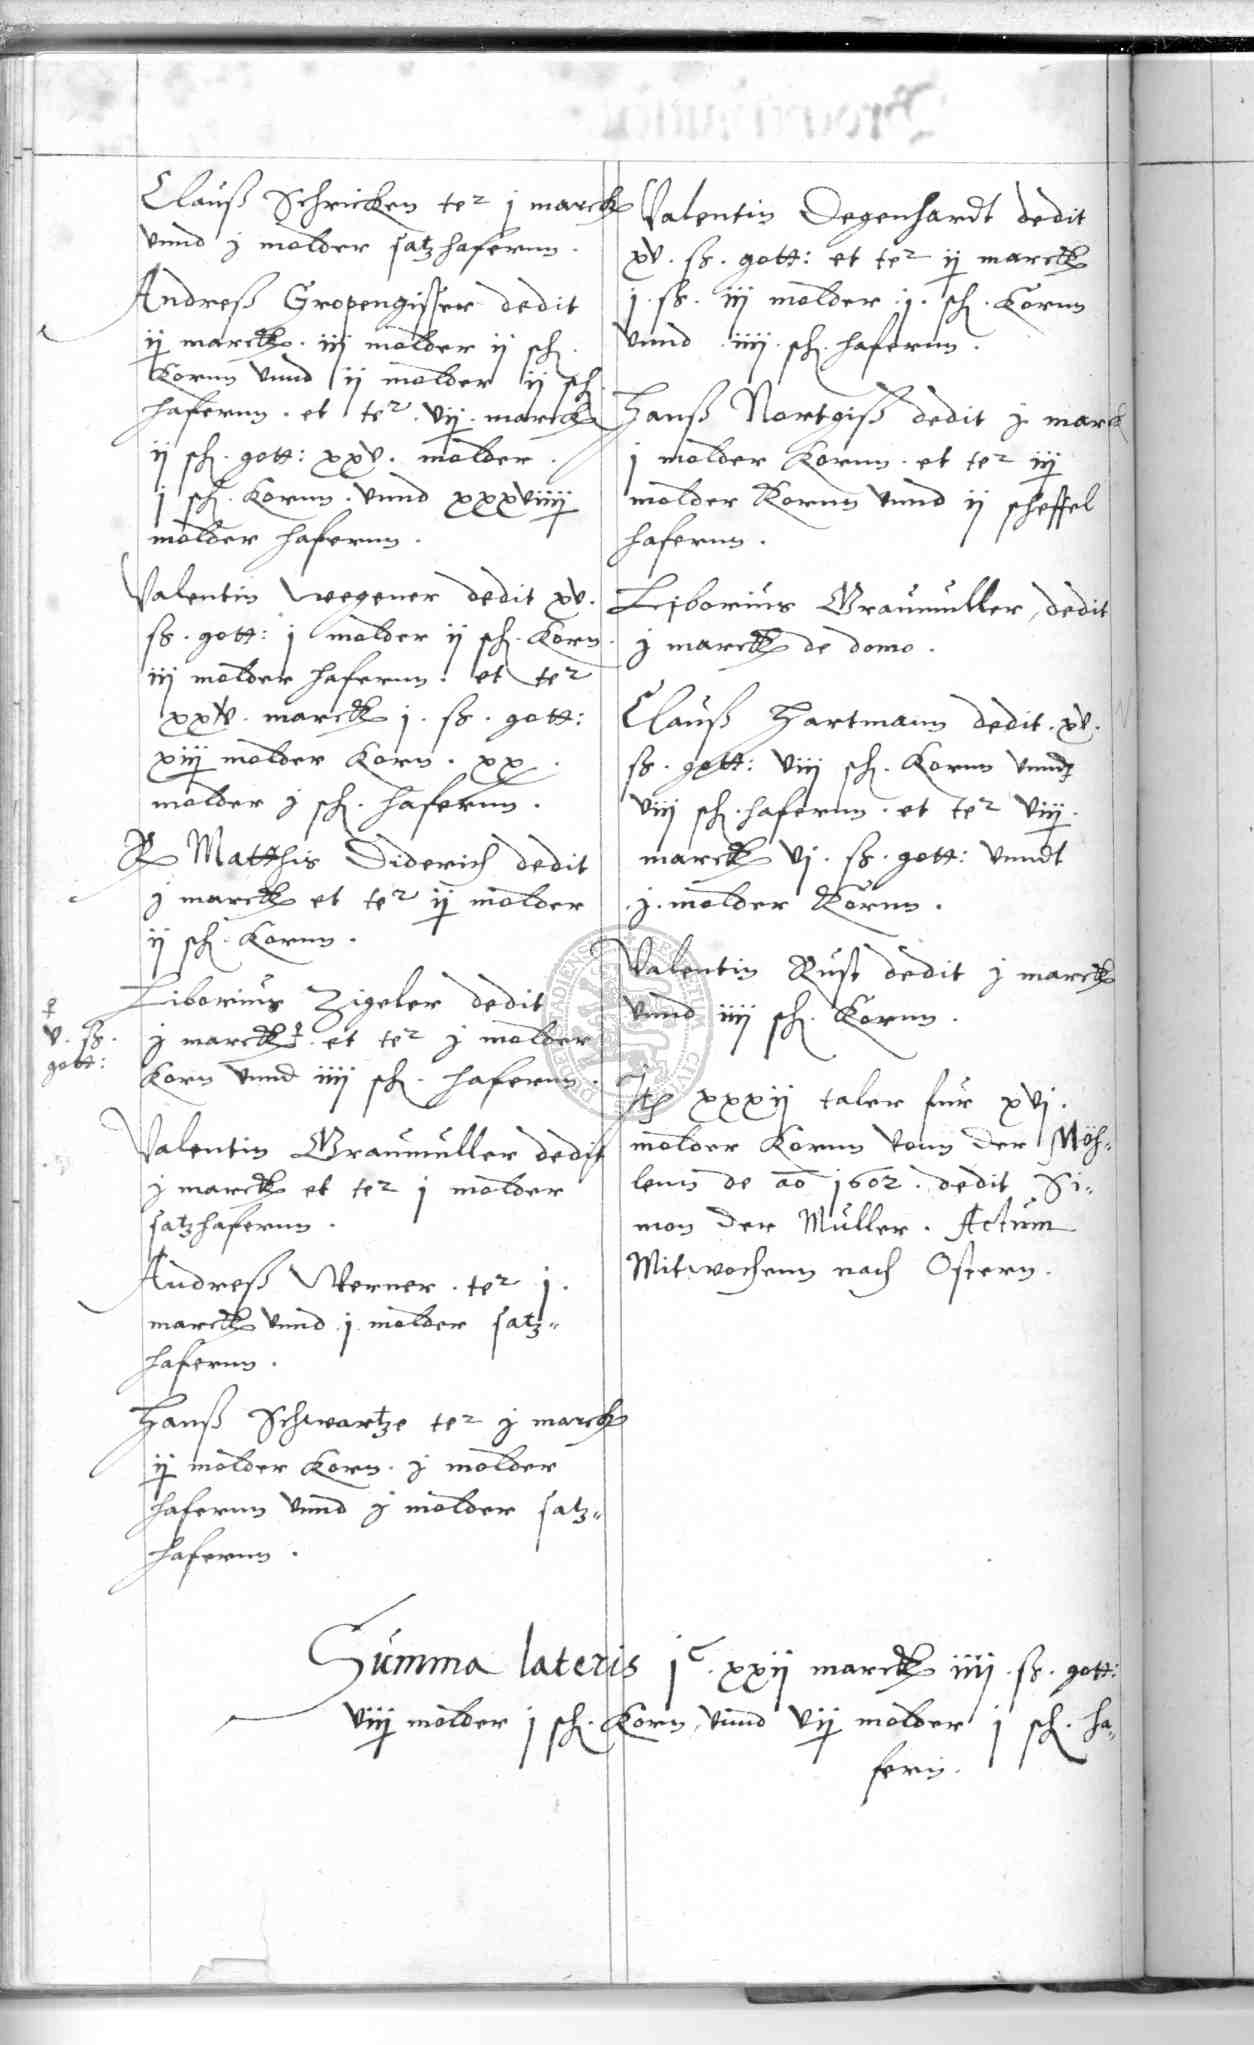 Clauß Schricken ter j marck
vnnd j molder satzhafernn.
Andreß Gropengisser dedit
ij marck. iij molder ij sch.
Kornn vnnd ij molder ij sch.
hafernn. et ter. vij. marck
ij sch. gott: xxv. molder.
j sch. Kornn. vnnd xxxviiij
molder hafernn.
Valentin Wegener dedit xv.
ss. gott: j molder ij sch. Korn.
iij molder hafernn. et ter
xxv. marck j. ss. gott:
xiij molder Korn. xx.
molder j sch. hafernn.
R Matthis Diderich dedit
j marck et ter ij molder
ij sch. Kornn.
Liborius Zigeler dedit
j marck et ter j molder
v. ss.
gott:
Korn vnnd iiij sch. hafernn.
Valentin Braumuller dedit
j marck et ter j molder
satzhafernn.
Andreß Werner. ter j.
marck vnnd j molder satz=
hafernn.
Hanß Schwartze ter j marck
ij molder Korn. j molder
hafernn vnnd j molder satz=
hafernn.
Valentin Degenhardt dedit
xv. ss. gott: et ter ij marck
j. ss. iij molder .j. sch. Kornn
vnnd .iiij. sch. hafernn.
Hanß Nortgiß dedit j marck
j molder Kornn. et ter iij
molder Kornn vnnd ij scheffel
hafernn.
Liborius Braumuller, dedit
j marck de domo.
Clauß Hartmann dedit. xv.
ss. gott: viij sch. Kornn vnndt
viij sch. hafernn. et ter viij.
marck vj. ss. gott: vnndt
.j. molder Kornn.
Valentin Rust dedit j marck
vnnd iiij sch. Kornn.
It xxxij taler fur xvj.
molder Kornn vonn der Möh=
lenn de ao 1602. dedit Si=
mon der Muller. Actum
Mitwochenn nach Ostern.
Summa lateris jc. xxij marck iiij. ss. gott:
viij molder j sch. Korn, vnnd vij molder j sch. ha=
fern.